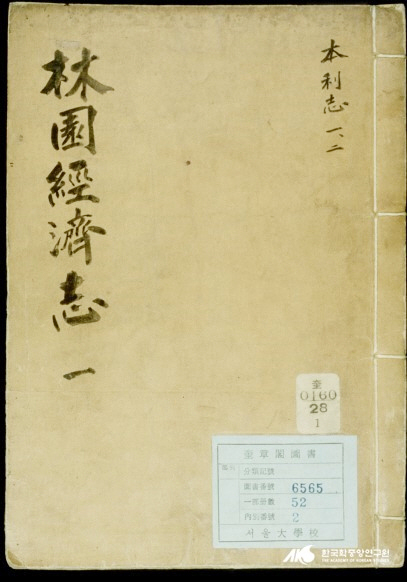 本利志 一、二
林園經濟志 一
奎
0160
28
1
奎章閣圖書
分類記號
圖書番號 6565
一部冊數 52
內別番號 2
서울大學校
AKS 한국학중앙연구원
THE ACADEMY OF KOREAN STUDIES